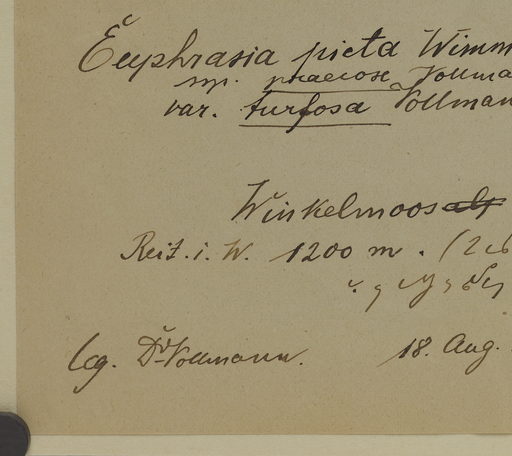 Euphrasia picta Wimm
ssp. praecose Vollma
var. turfosa Vollman
Winkelmoosalp
Reit. i. W. 1200 m.
leg. Dr. Vollmann. 18. Aug.